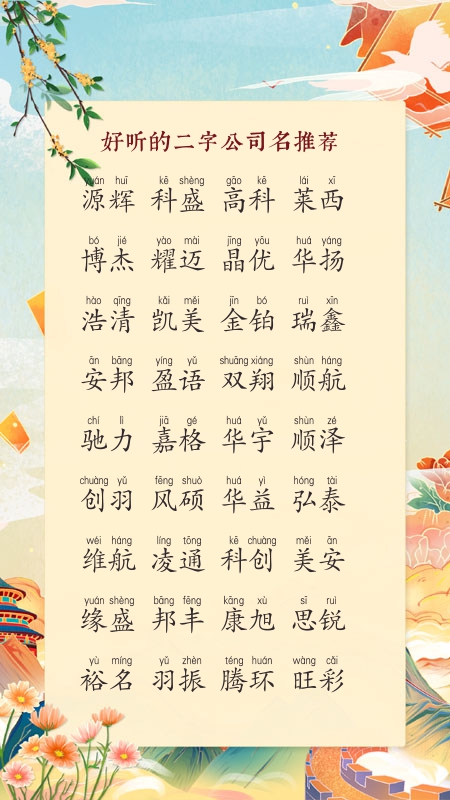 好听的二字公司名推荐
yuán huī kē shèng gāo kē lái xī
源辉 科盛 高科 莱西
bó jié yào mài jīng yōu huá yáng
博杰 耀迈 晶优 华扬
hào qīng kǎi měi jīn bó ruì xīn
浩清 凯美 金铂 瑞鑫
ān bāng yíng yǔ shuāng xiáng shùn háng
安邦 盈语 双翔 顺航
chí lì jiā gé huá yǔ shùn zé
驰力 嘉格 华宇 顺泽
chuàng yǔ fēng shuò huá yì hóng tài
创羽 风硕 华益 弘泰
wéi háng líng tōng kē chuàng měi ān
维航 凌通 科创 美安
yuán shèng bāng fēng kāng xù sī ruì
缘盛 邦丰 康旭 思锐
yù míng yǔ zhèn téng huán wàng cǎi
裕名 羽振 腾环 旺彩